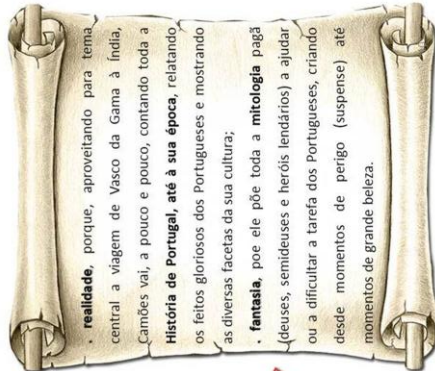 . realidade, porque, aproveitando para tema
central a viagem de Vasco da Gama à Índia,
Camões vai, a pouco e pouco, contando toda a
História de Portugal, até à sua época, relatando
os feitos gloriosos dos Portugueses e mostrando
as diversas facetas da sua cultura;
. fantasia, poe ele põe toda a mitologia pagã
(deuses, semideuses e heróis lendários) a ajudar
ou a dificultar a tarefa dos Portugueses, criando
desde momentos de perigo (suspense) até
momentos de grande beleza.